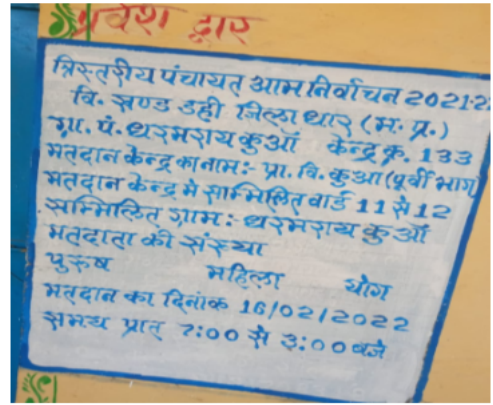 प्रवेश द्वार
त्रिस्तरीय पंचायत आम निर्वाचन 2021-2
वि. खण्ड डही जिला धार (म. प्र.)
ग्रा. पं. धरमराय कुआँ केन्द्र क्र. 133
मतदान केन्द्र का नाम:- प्रा. वि. कुआ (पूर्वी भाग)
मतदान केन्द्र मे साम्मिलित वार्ड 11 से 12
साम्मिलित ग्राम: धरमराय कुआँ
मतदाता की संख्या
पुरुष महिला योग
मतदान का दिनांक 16/02/2022
समय प्रात 7:00 से 3:00 बजे